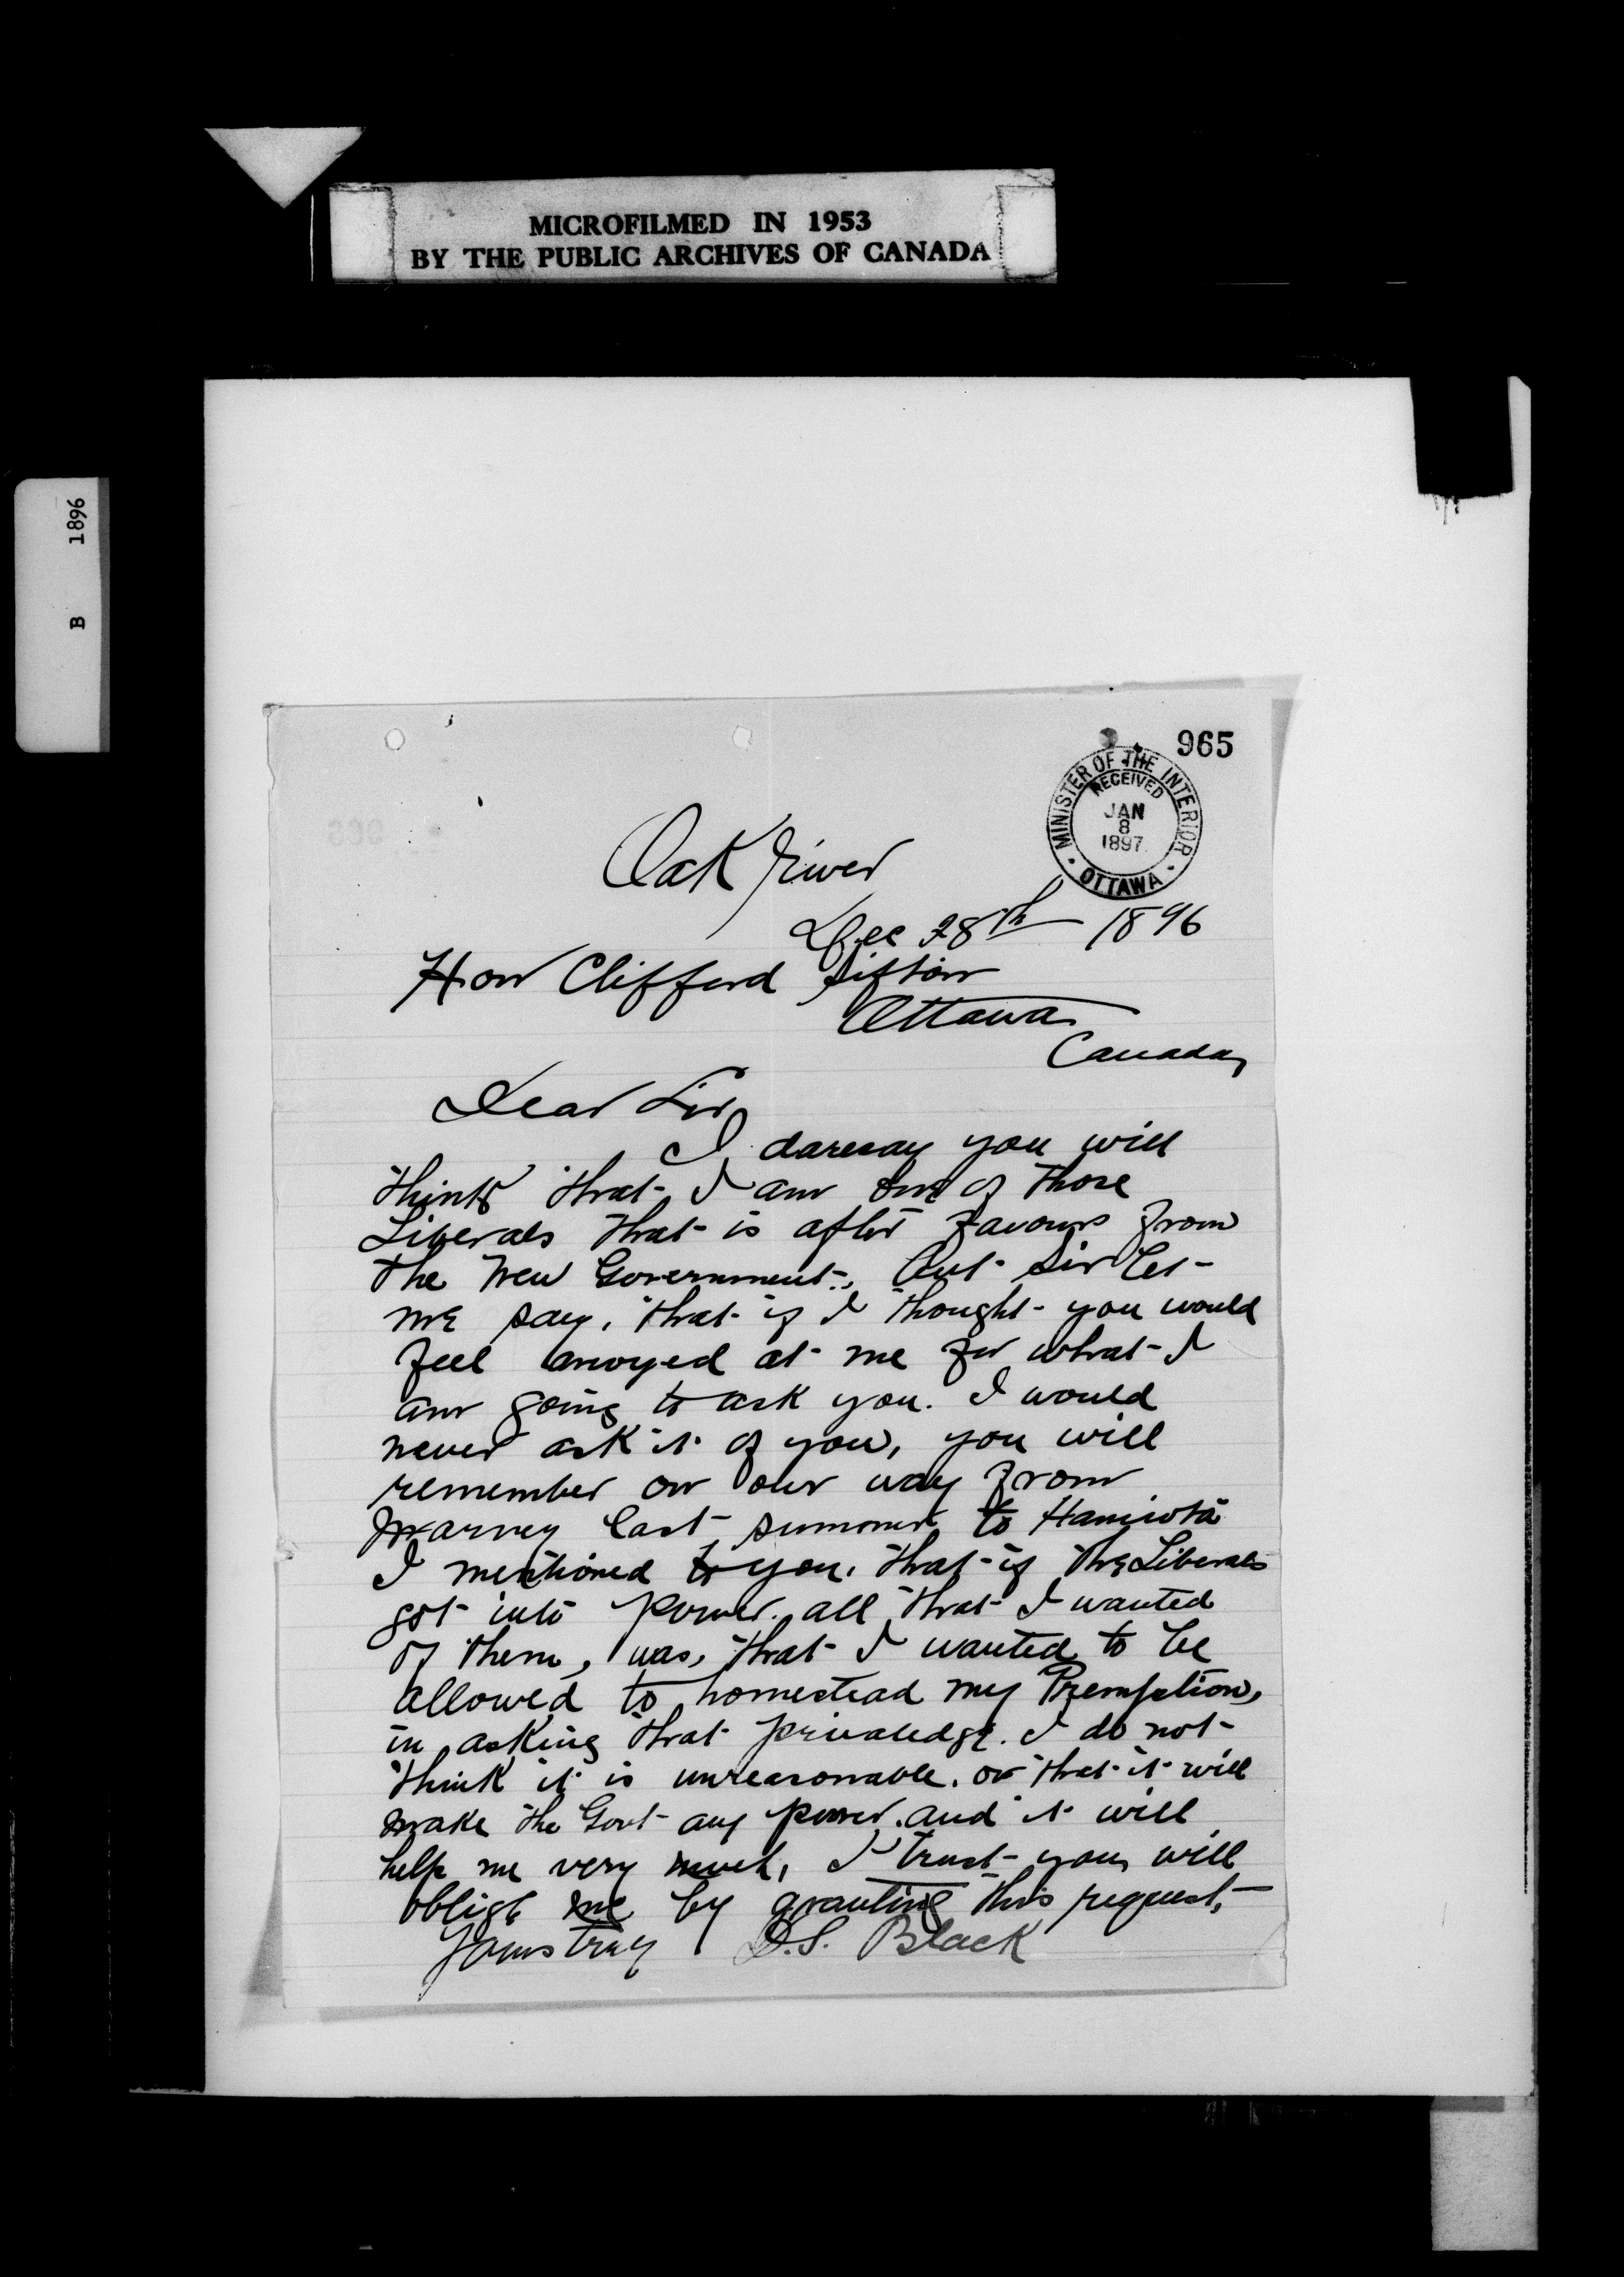 MICROFILMED IN 1953
BY THE PUBLIC ARCHIVES OF CANADA
B 1896
965
MINISTER OF THE INTERIOR
RECEIVED
JAN
8
1897
OTTAWA
Oak River
Dec 28th 1896
Hon Clifford Sifton
Ottawa
Canada,
Dear Sir,
I daresay you will
think that I am one of those
Liberals that is after favours from
the New Government, But Sir let
me say, that if I thought you would
feel anoyed at me for what I
am going to ask you. I would
never ask it of you, you will
remember on our way from
last summer to Hamiota
I mentioned to you, that if the Liberals
got into power. all that I wanted
of them, was, that I wanted to be
allowed to homestead my Premption,
in asking that privaledge. I do not
think it is unreasonable. or that it will
make the Govt any poorer. and it will
help me very much, I trust you will
oblige me by granting this request,
Yours truly D.S. Black